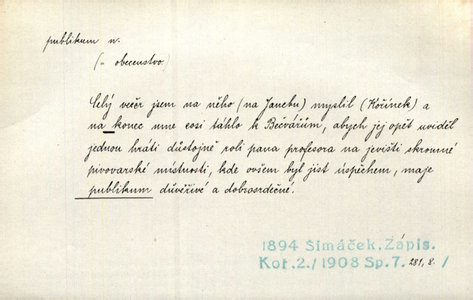 publikum n.
(= obecenstvo)
Celý večer jsem na něho (na Janebu) myslil (Kořínek) a
na konec mne cosi táhlo k Bečvářům, abych jej opět uviděl
jednou hráti důstojně roli pana profesora na jevišti skromné
pivovarské místnosti, kde ovšem byl jist úspěchem, maje
publikum důvěřivé a dobrosrdečné.
1894 Šimáček, Zápis.
Koř.2./1908 Sp.7. 281, 8. /